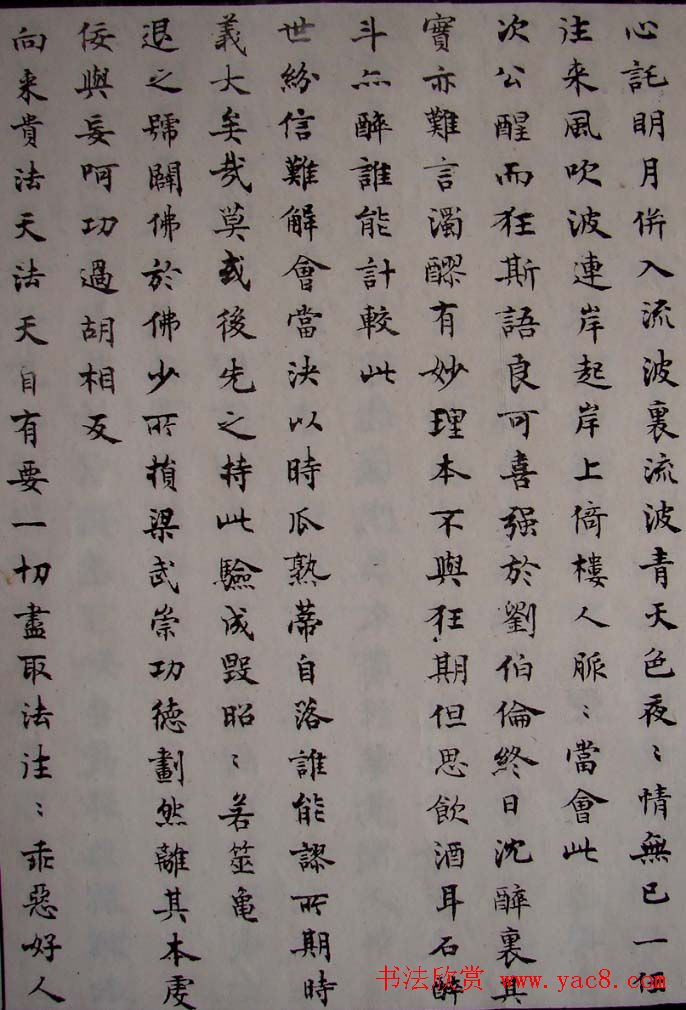 心託明月併入流波裏流波青天色夜〻情無已一任
注来風吹波連岸起岸上倚樓人脈〻當會此
次公醒而狂斯語良可喜强於劉伯倫終日沈醉裏其
實亦難言濁醪有妙理本不與狂期但思飲酒耳石醉
斗亦醉誰能計較此
世紛信難解會當決以時瓜熟蒂自落誰能謬所期時
義大矣哉莫或後先之持此驗成毀昭〻若筮龜
退之號闢佛於佛少所損梁武崇功德劃然離其本虔
佞與妄呵功過胡相反
向来貴法天法天自有要一切盡取法注〻乖惡好人
书法欣赏 www.yac8.com